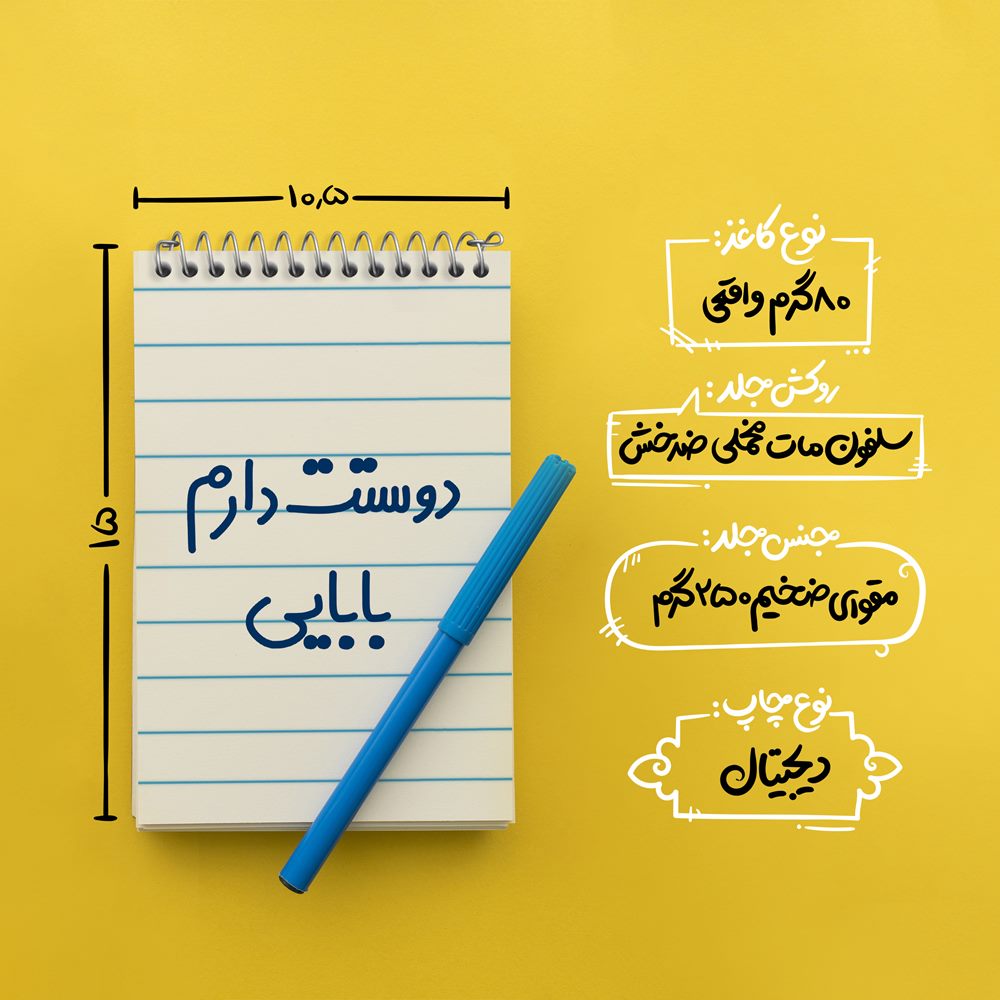 ۱۰٫۵
۱۵
دوستت دارم
بابایی
نوع کاغذ:
۸۰گرم واقعی
روکش جلد:
سلفون مات مخملی ضدخش
جنس جلد:
مقوای ضخیم ۲۵۰گرم
نوع چاپ:
دیجیتال